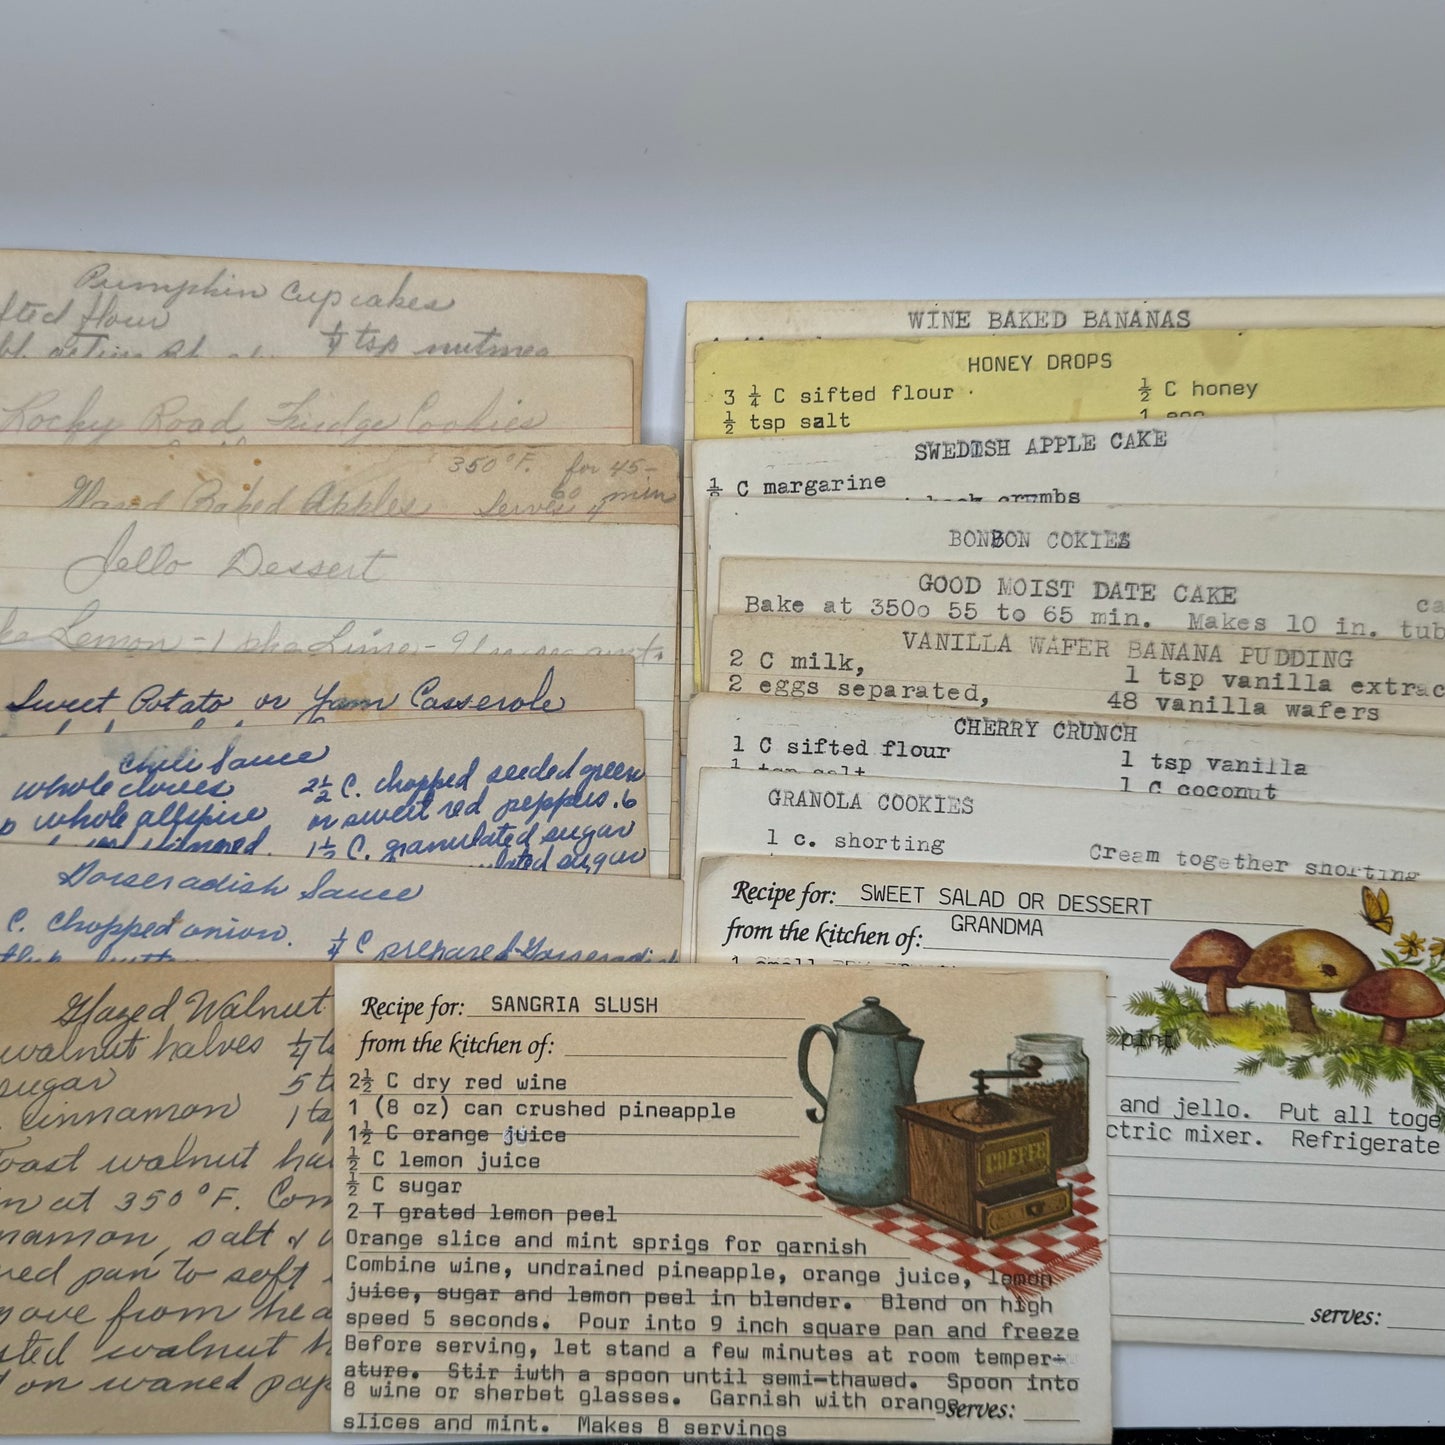 Pumpkin Cupcakes
fted flour
1/4 tsp nutmeg
Rocky Road Fudge Cookies
350°F. for 45-
60 min
Baked Apples Serves 4
Jello Dessert
Lemon - 1 pkg Lime -
Sweet Potato or Yam Casserole
Chili Sauce
whole cloves 2 1/2 C. chopped seeded green
whole allspice or sweet red peppers. 6
1 1/2 C. granulated sugar
Horseradish Sauce
C. chopped onion. 1/4 C prepared Horseradish
Glazed Walnut
walnut halves 1/4 ts
sugar 5 t
cinnamon 1 ts
oast walnut ha
n at 350°F. Com
namon, salt &
red pan to soft
move from hea
sted walnut h
on waxed pap
WINE BAKED BANANAS
HONEY DROPS
3 1/4 C sifted flour 1/2 C honey
1/2 tsp salt 1 egg
SWEDISH APPLE CAKE
C margarine
crumbs
BONBON COKIES
GOOD MOIST DATE CAKE
Bake at 350o 55 to 65 min. Makes 10 in. tub
VANILLA WAFER BANANA PUDDING
2 C milk, 1 tsp vanilla extrac
2 eggs separated, 48 vanilla wafers
CHERRY CRUNCH
1 C sifted flour 1 tsp vanilla
1 tsp salt 1 C coconut
GRANOLA COOKIES
1 c. shorting
Cream together shorting
Recipe for: SWEET SALAD OR DESSERT
from the kitchen of: GRANDMA
1 small
pint
and jello. Put all toge
ctric mixer. Refrigerate
serves:
Recipe for: SANGRIA SLUSH
from the kitchen of:
2½ C dry red wine
1 (8 oz) can crushed pineapple
1½ C orange juice
½ C lemon juice
½ C sugar
2 T grated lemon peel
Orange slice and mint sprigs for garnish
Combine wine, undrained pineapple, orange juice, lemon
juice, sugar and lemon peel in blender. Blend on high
speed 5 seconds. Pour into 9 inch square pan and freeze
Before serving, let stand a few minutes at room temper-
ature. Stir iwth a spoon until semi-thawed. Spoon into
8 wine or sherbet glasses. Garnish with orange
slices and mint. Makes 8 servings
serves:
COFFEE